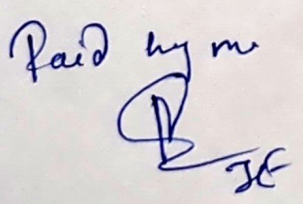 Paid by me
JE